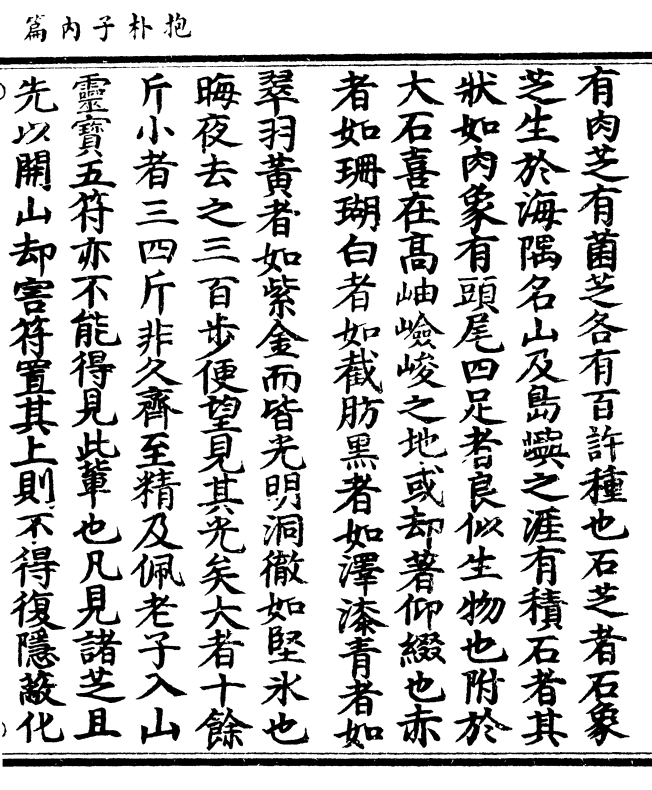 抱朴子內篇
有肉芝有菌芝各有百許種也石芝者石象
芝生於海隅名山及島嶼之涯有積石者其
狀如肉象有頭尾四足者良似生物也附於
大石喜在高岫嶮峻之地或却著仰綴也赤
者如珊瑚白者如截肪黑者如澤漆青者如
翠羽黃者如紫金而皆光明洞徹如堅氷也
晦夜去之三百步便望見其光矣大者十餘
斤小者三四斤非久齊至精及佩老子入山
靈寶五符亦不能得見此軰也凡見諸芝且
先以開山却害符置其上則不得復隱蔽化